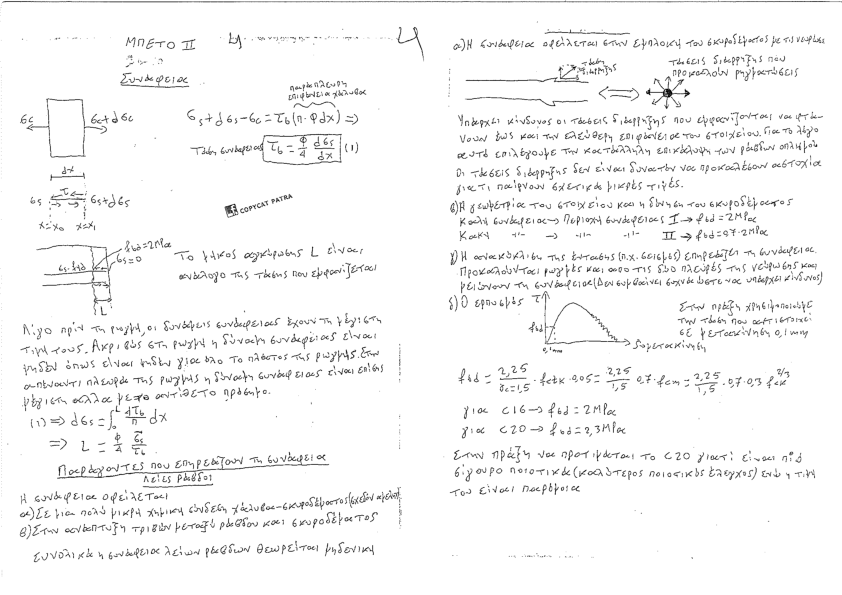 ΜΠΕΤΟ ΙΙ
Συνάφεια
παράπλευρη
επιφάνεια χάλυβα
σc σc+dσc
σs+dσs-σc=τb(π·Φdx) ⇒
Τάση συνάφειας τb = Φ/4 dσs/dx (1)
dx
σs τ σs+dσs
x=x₀ x=x₁
COPYCAT PATRA
fbd=2MPa
σs=0
L
Το μήκος αγκύρωσης L είναι
ανάλογο της τάσης που εμφανίζεται
Λίγο πρίν τη ρωγμή, οι δυνάμεις συνάφειας έχουν τη μέγιστη
τιμή τους. Ακριβώς στη ρωγμή η δύναμη συνάφειας είναι
μηδέν όπως είναι μηδέν για όλο το πλάτος της ρωγμής. Στην
απέναντι πλευρά της ρωγμής η δύναμη συνάφειας είναι επίσης
μέγιστη αλλά με το αντίθετο πρόσημο.
(1) ⇒ dσs = ∫₀ᴸ dx
⇒ L = Φ/4 σs/τb
Παράγοντες που επηρεάζουν τη συνάφεια
Λείες ράβδοι
Η συνάφεια οφείλεται
α) Σε μια πολύ μικρή χημική σύνδεση χάλυβα-σκυροδέματος (σχεδόν αμελητ)
β) Στην ανάπτυξη τριβών μεταξύ ράβδου και σκυροδέματος
Συνολικά η συνάφεια λείων ράβδων θεωρείται μηδενική
α) Η συνάφεια οφείλεται στην εμπλοκή του σκυροδέματος με τις νευρώσεις
τάση
διάρρηξης
τάσεις διάρρηξης που
προκαλούν ρηγματώσεις
Υπάρχει κίνδυνος οι τάσεις διάρρηξης που εμφανίζονται να φτά-
νουν έως και την ελεύθερη επιφάνεια του στοιχείου. Για το λόγο
αυτό επιλέγουμε την κατάλληλη επικάλυψη των ράβδων οπλισμού
Οι τάσεις διάρρηξης δεν είναι δυνατόν να προκαλέσουν αστοχία
γιατί παίρνουν σχετικά μικρές τιμές.
β) Η γεωμετρία του στοιχείου και η δόνηση του σκυροδέματος
Καλή συνάφεια → Περιοχή συνάφειας I → fbd=2MPa
Κακή -"- → -"- -"- II → fbd=0,7·2MPa
γ) Η ανακύκλιση της έντασης (π.χ. σεισμός) επηρεάζει τη συνάφεια.
Προκαλούνται ρωγμές και από τις δύο πλευρές της νεύρωσης και
μειώνουν τη συνάφεια (Δεν συμβαίνει συχνά ώστε να υπάρχει κίνδυνος)
δ) Ο ερπυσμός
τ
fbd
0,1mm
δ μετακίνηση
Στην πράξη χρησιμοποιούμε
την τάση που αντιστοιχεί
σε μετακίνηση 0,1mm
fbd = 2,25/γc=1,5 · fctk 0,05 = 2,25/1,5 · 0,7 · fcm = 2,25/1,5 · 0,7·0,3 fck^2/3
για C16 → fbd = 2MPa
για C20 → fbd = 2,3MPa
Στην πράξη να προτιμάται το C20 γιατί είναι πιο
σίγουρο ποιοτικά (καλύτερος ποιοτικός έλεγχος) ενώ η τιμή
του είναι παρόμοια